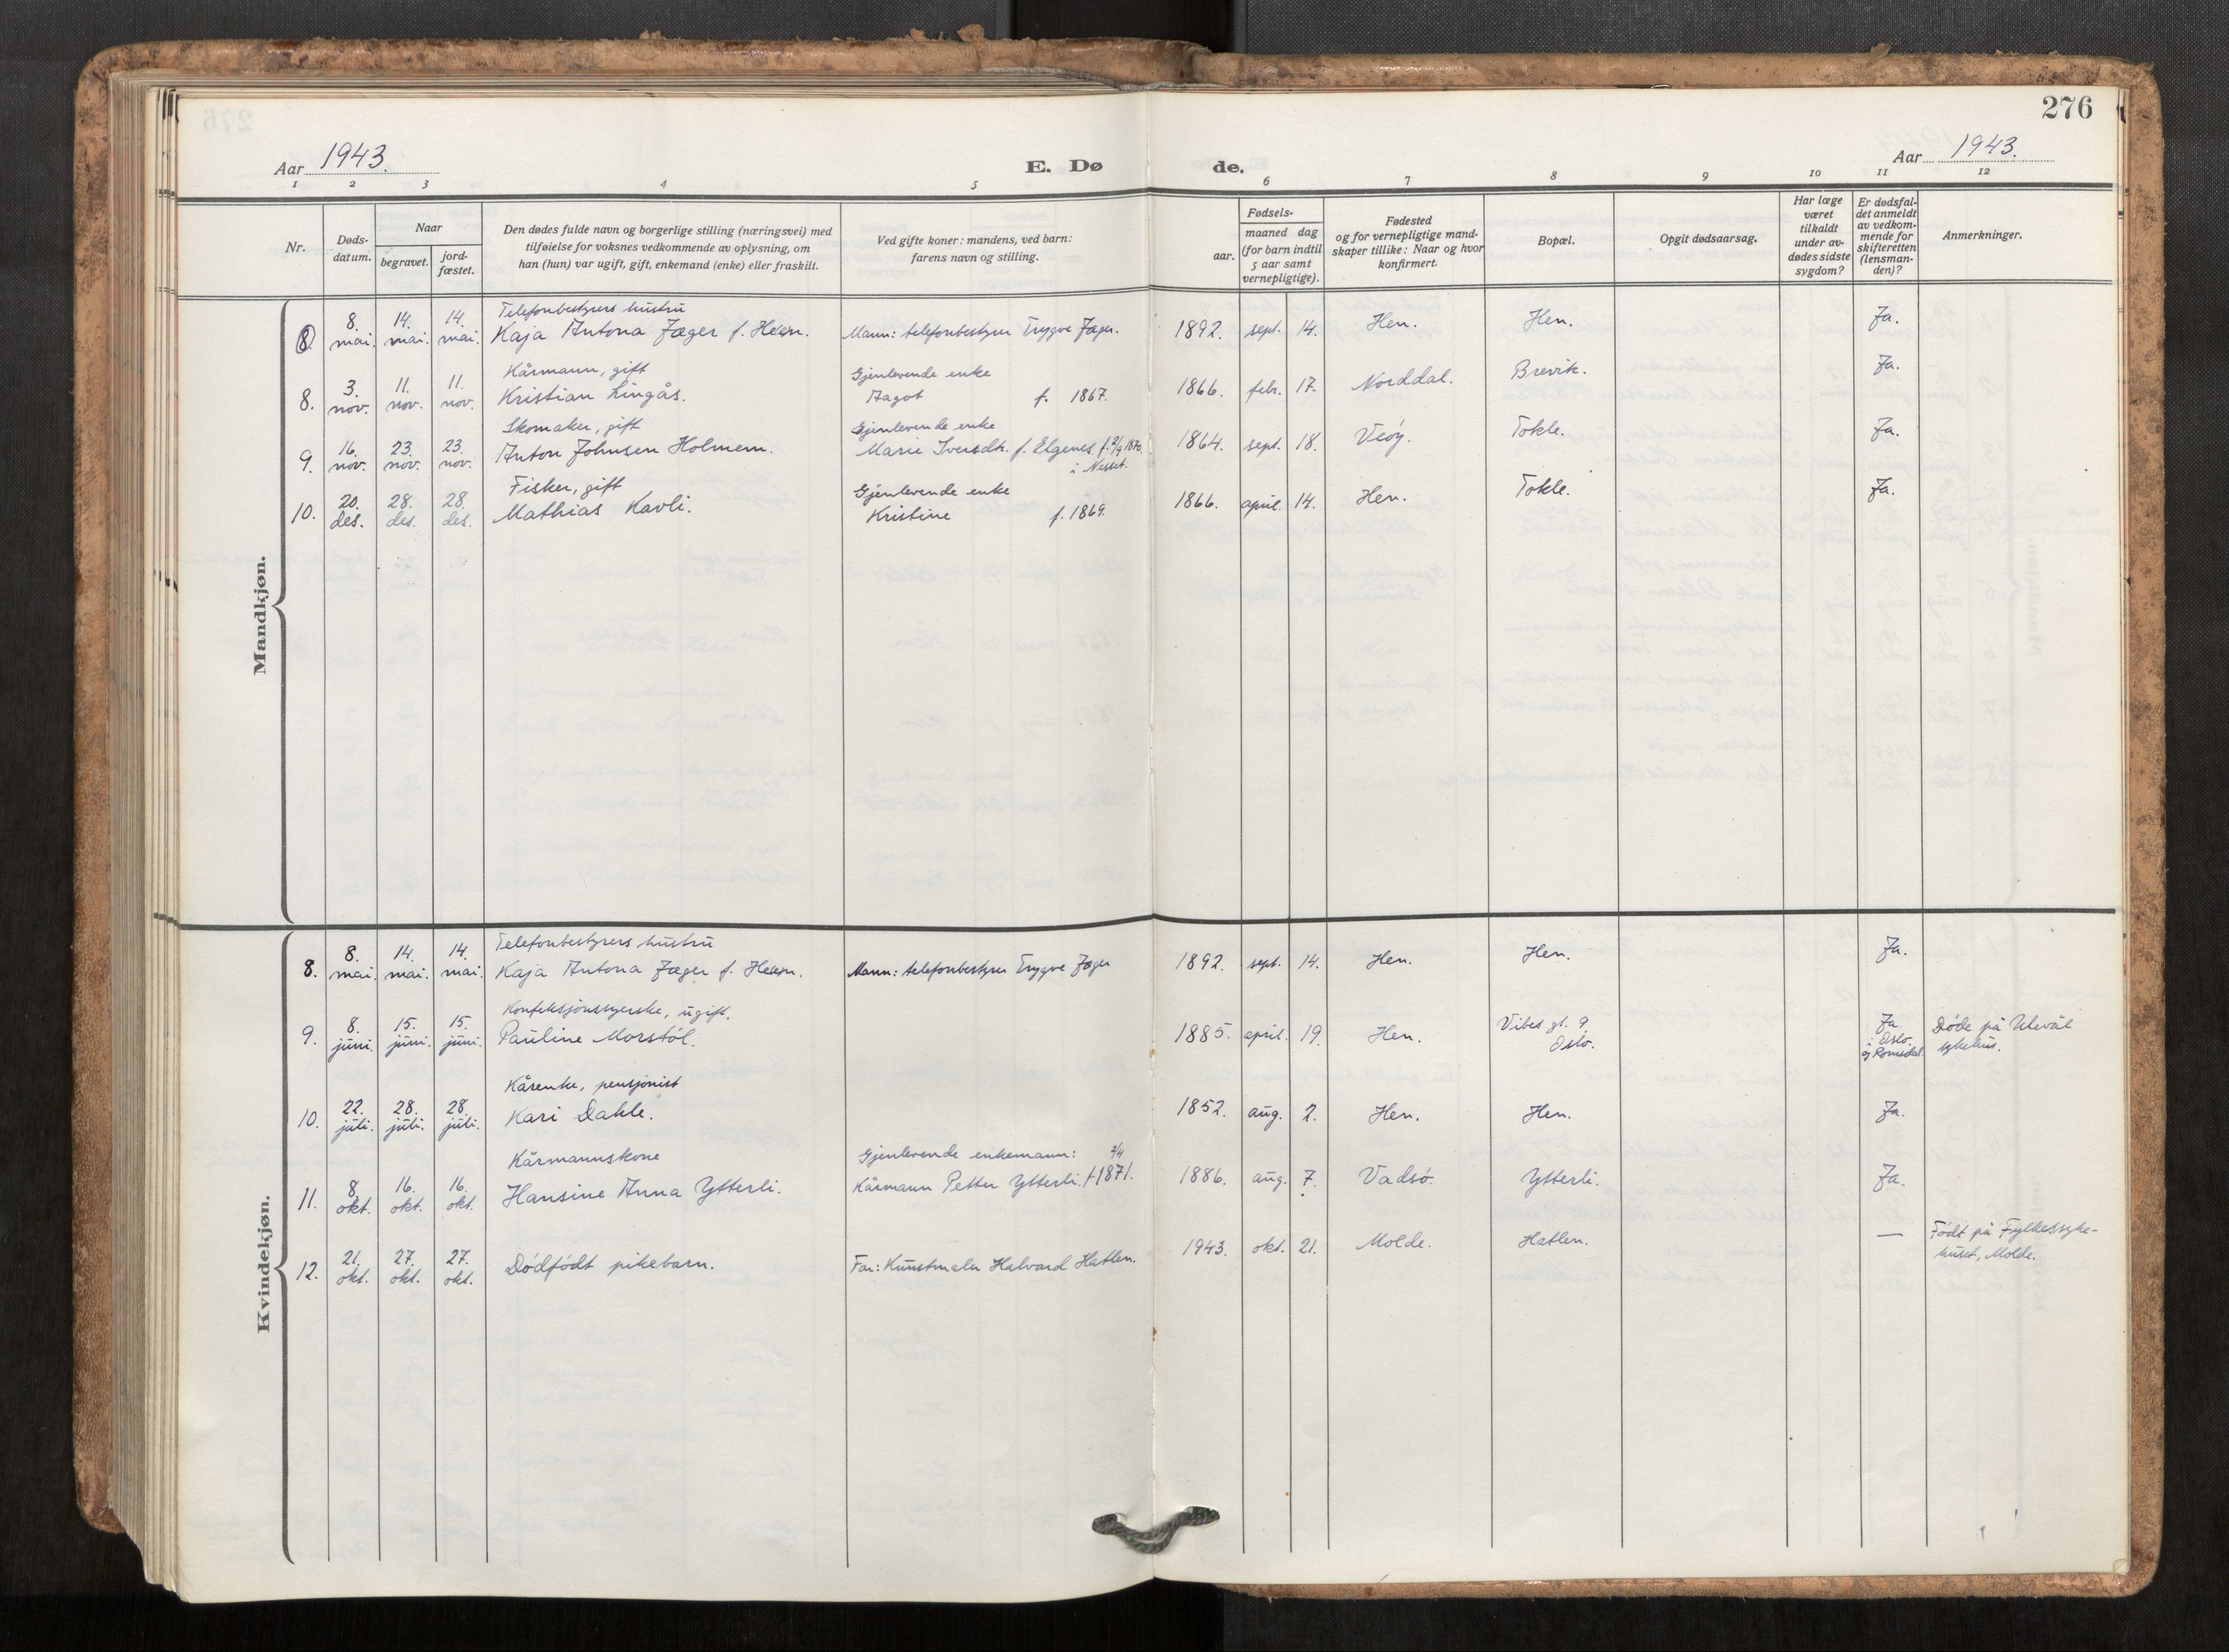 276
Aar 1943.
E. Dø
de.
Aar 1943.
1 2 3 4 5 6 7 8 9 10 11 12
Nr.
Døds-
datum.
Naar
begravet.
jord-
fæstet.
Den dødes fulde navn og borgerlige stilling (næringsvei) med
tilføielse for voksnes vedkommende av oplysning, om
han (hun) var ugift, gift, enkemand (enke) eller fraskilt.
Ved gifte koner: mandens, ved barn:
farens navn og stilling.
Fødsels-
aar.
maaned dag
(for barn indtil
5 aar samt
vernepligtige).
Fødested
og for vernepligtige mand-
skaper tillike: Naar og hvor
konfirmert.
Bopæl.
Opgit dødsaarsag.
Har læge
været
tilkaldt
under av-
dødes sidste
sygdom?
Er dødsfal-
det anmeldt
av vedkom-
mende for
skifteretten
(lensman-
den)?
Anmerkninger.
Mandkjøn.
Telefonbestyrers hustru
8. 8. mai. 14. mai. 14. mai. Kaja Antona Jæger f. Mann: telefonbestyrer Trygve Jæger. 1892. sept. 14. Hen. Hen. Ja.
Kårmann, gift Gjenlevende enke
8. 3. nov. 11. nov. 11. nov. Kristian Lingås. Aagot f. 1867. 1866. febr. 17. Norddal. Brevik. Ja.
Skomaker, gift Gjenlevende enke
9. 16. nov. 23. nov. 23. nov. Anton Johnsen Holmem. Marie Iversdtr. f. Elgenes. f. 2/9 1870. 1864. sept. 18. Veøy. Tokle. Ja.
i Nesset.
Fisker, gift Gjenlevende enke
10. 20. des. 28. des. 28. des. Mathias Kavli. Kristine f. 1869. 1866. april. 14. Hen. Tokle. Ja.
Kvindekjøn.
Telefonbestyrers hustru
8. 8. mai. 14. mai. 14. mai. Kaja Antona Jæger f. Mann: telefonbestyrer Trygve Jæger 1892. sept. 14. Hen. Hen. Ja.
Konfeksjonssyerske, ugift.
9. 8. juni. 15. juni. 15. juni. Pauline Morstøl. 1885. april. 19. Hen. Vibes gt. 9. Oslo. Ja i Oslo. og Romsdal. Døde på Ulevål
sykehus.
Kårenke, pensjonist
10. 22. juli. 28. juli. 28. juli. Kari Dahle. 1852. aug. 2. Hen. Hen. Ja.
Kårmannskone Gjenlevende enkemann:
11. 8. okt. 16. okt. 16. okt. Hansine Anna Ytterli. Kårmann Petter Ytterli. f. 1871. 1886. aug. 7. Vadsø. Ytterli. Ja.
12. 21. okt. 27. okt. 27. okt. Dødfødt pikebarn. Far: Kunstmaler Halvard Hatlen. 1943. okt. 21. Molde. Hatlen. — Født på Fylkessyke-
huset, Molde.